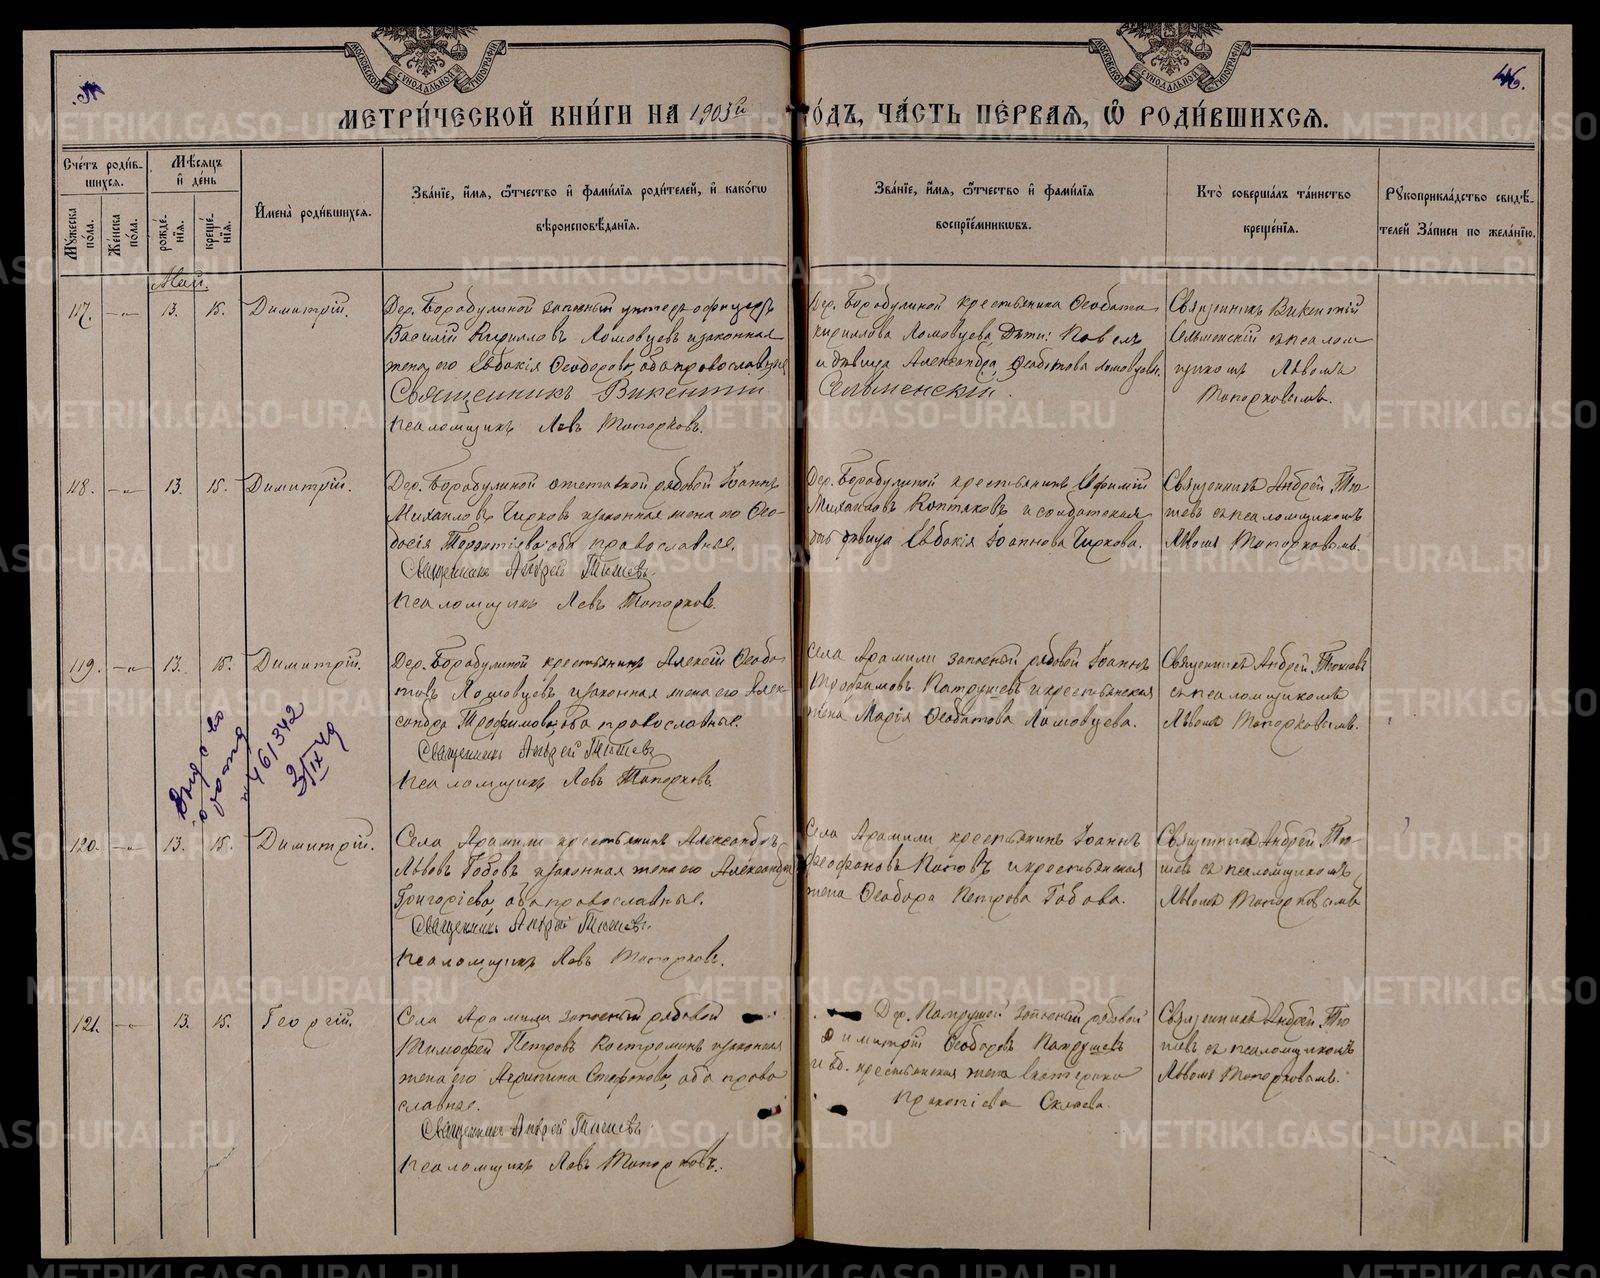 МЕТРИ́ЧЕСКОЙ КНИ́ГИ НА 1903й ГО́ДЪ, ЧА́СТЬ ПЕ́РВАѦ, Ѽ РОДИ́ВШИХСѦ.
46.
Сче́тъ роди́в-
шихсѧ.
Мꙋ́жеска по́ла.
Же́нска по́ла.
Мѣ́сѧцъ и҆ де́нь
рожде́-
нїѧ.
креще́-
нїѧ.
И҆мена̀ роди́вшихсѧ.
Зва́нїе, и҆́мѧ, ѻ҆́тчество и҆ фами́лїѧ роди́телей, и҆ како́гѡ
вѣроисповѣ́данїѧ.
Зва́нїе, и҆́мѧ, ѻ҆́тчество и҆ фами́лїѧ
воспрїе́мникѡвъ.
Кто̀ соверша́лъ та́инство
креще́нїѧ.
Рꙋкоприкла́дство свидѣ́-
телей За́писи по жела́нїю.
Май.
117. —"— 13. 15. Димитрій.
Дер. Бородулиной запасный унтеръ офицеръ
Василій Кирилловъ Ломовцевъ и законная
жена его Евдокія Ѳеодорова, оба православные
Священникъ Викентій Сельменскій.
Псаломщикъ Левъ Топорковъ.
Дер. Бородулиной крестьянина Ѳеодота
Кириллова Ломовцева дѣти: Павелъ
и дѣвица Александра Ѳеодотова Ломовцевы.
Священникъ Викентій
Сельменскій съ псалом
щикомъ Львомъ
Топорковымъ.
118. —"— 13. 15. Димитрій.
Дер. Бородулиной отставной рядовой Іоаннъ
Михаиловъ Чирковъ и законная жена его Ѳео-
досія Терентіева, оба православные.
Священникъ Андрей Тюшевъ.
Псаломщикъ Левъ Топорковъ.
Дер. Бородулиной крестьянинъ Ефимій
Михаиловъ Коптяковъ и солдатская
дочь дѣвица Евдокія Іоаннова Чиркова.
Священникъ Андрей Тю-
шевъ съ псаломщикомъ
Львомъ Топорковымъ.
119. —"— 13. 15. Димитрій.
Дер. Бородулиной крестьянинъ Алексій Ѳеодо-
товъ Ломовцевъ и законная жена его Алек-
сандра Трофимова, оба православные.
Священникъ Андрей Тюшевъ
Псаломщикъ Левъ Топорковъ.
Села Арамили запасный рядовой Іоаннъ
Трофимовъ Патрушевъ и крестьянская
жена Марія Ѳеодотова Ломовцева.
Священникъ Андрей Тюшевъ
съ псаломщикомъ
Львомъ Топорковымъ.
461342
3/IX 49
120. —"— 13. 15. Димитрій.
Села Арамили крестьянинъ Александръ
Львовъ Бобовъ и законная жена его Александра
Григоріева, оба православные.
Священникъ Андрей Тюшевъ.
Псаломщикъ Левъ Топорковъ.
Села Арамили крестьянинъ Іоаннъ
Ѳеофановъ Поповъ и крестьянская
жена Ѳеодора Петрова Бобова.
Священникъ Андрей Тю-
шевъ съ псаломщикомъ
Львомъ Топорковымъ
121. —"— 13. 15. Георгій.
Села Арамили запасный рядовой
Тимофей Петровъ Костроминъ и законная
жена его Агрипина Стефанова, оба право
славные.
Священникъ Андрей Тюшевъ
Псаломщикъ Левъ Топорковъ.
Дер. Патрушей запасный рядовой
Димитрій Ѳеодоровъ Патрушевъ
и крестьянская жена Екатерина
Прокопіева Скляева.
Священникъ Андрей Тю
шевъ съ псаломщикомъ
Львомъ Топорковымъ.
METRIKI.GASO-URAL.RU